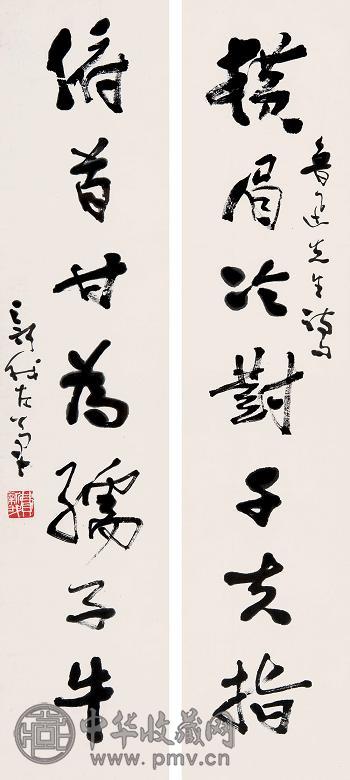 橫眉冷對千夫指
魯迅先生詩句
俯首甘為孺子牛
中华收藏网
www.pmv.cn